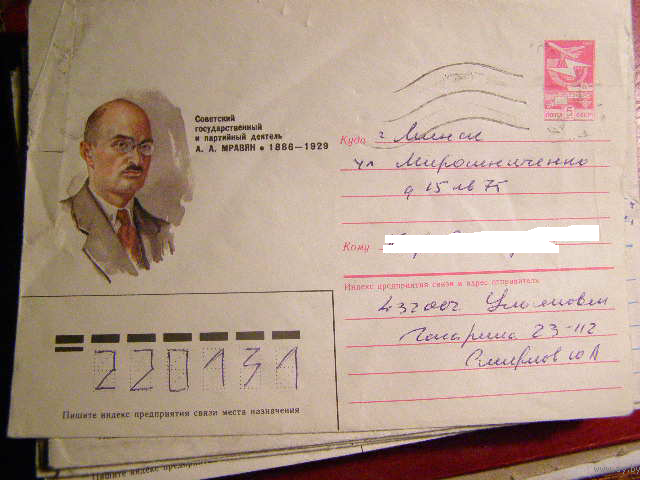 Советский
государственный
и партийный деятель
А. А. МРАВЯН • 1886—1929
ПОЧТА СССР
Куда г Минск
ул Мирошниченко
д 15 кв 75
Кому
Индекс предприятия связи и адрес отправителя
432002 Ульяновск
Гагарина 23-112
Смирнов Ю А
220131
Пишите индекс предприятия связи места назначения
Пишите индекс предпри